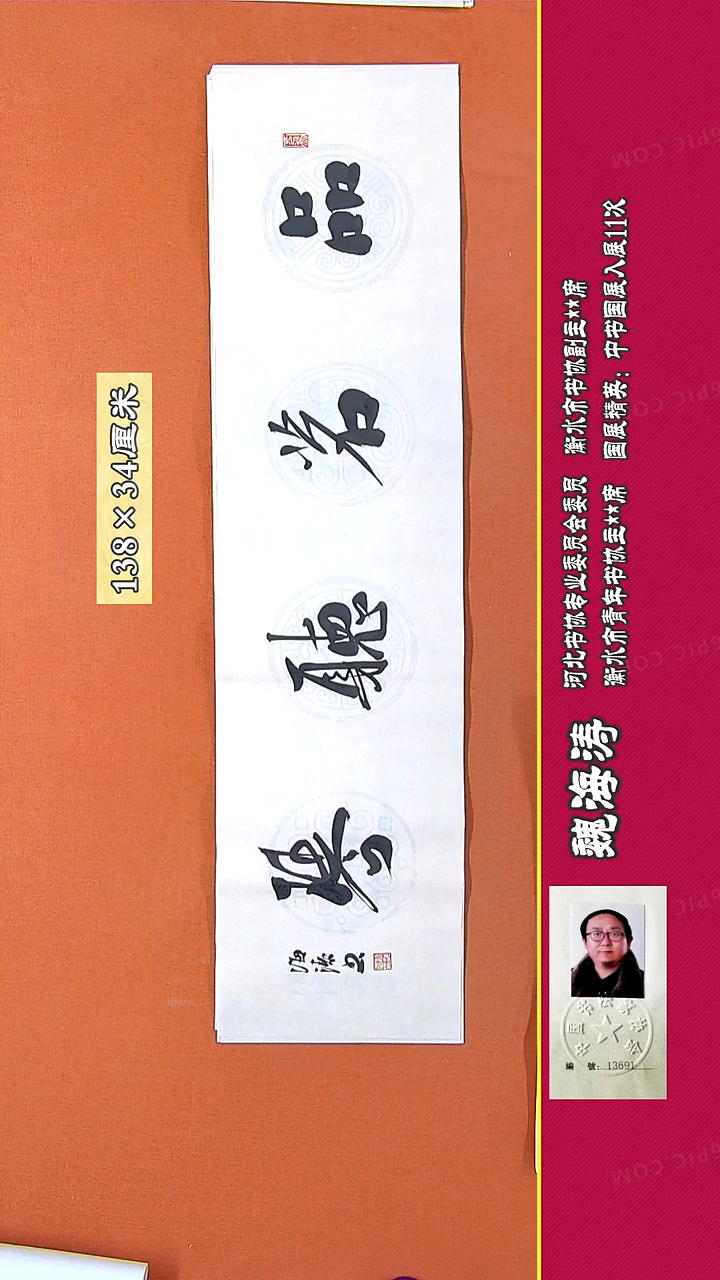 138×34厘米
品茗聽琴
海涛书
魏海涛
河北书协专业委员会委员 衡水市书协副主**席
衡水市青年书协主**席 国展精英：中书国展入展11次
編 號：13691